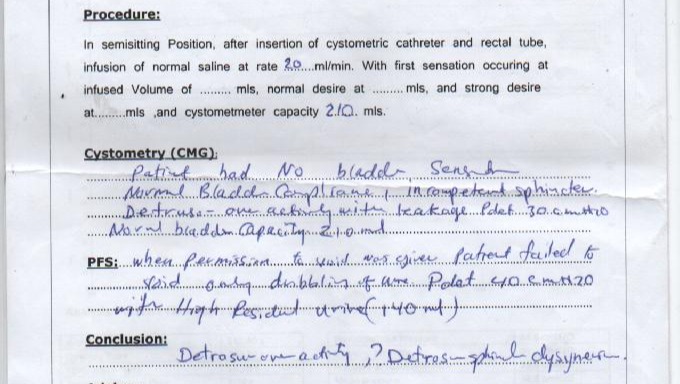 Procedure:
In semisitting Position, after insertion of cystometric cathreter and rectal tube,
infusion of normal saline at rate 20....ml/min. With first sensation occuring at
infused Volume of ......... mls, normal desire at ......... mls, and strong desire
at.........mls ,and cystometmeter capacity 210. mls.
Cystometry (CMG):
Patient had No bladder Sensation
Normal Bladder Compliance, incompetent sphincter.
Detrusor over activity with leakage Pdet 30 cmH20
Normal bladder Capacity 210 ml
PFS: when Permission to void was given Patient failed to
void only dribbling of urine Pdet 40 cmH20
with High Residual urine (140 ml)
Conclusion:
Detrosur over activity, ? Detrosur-sphincter